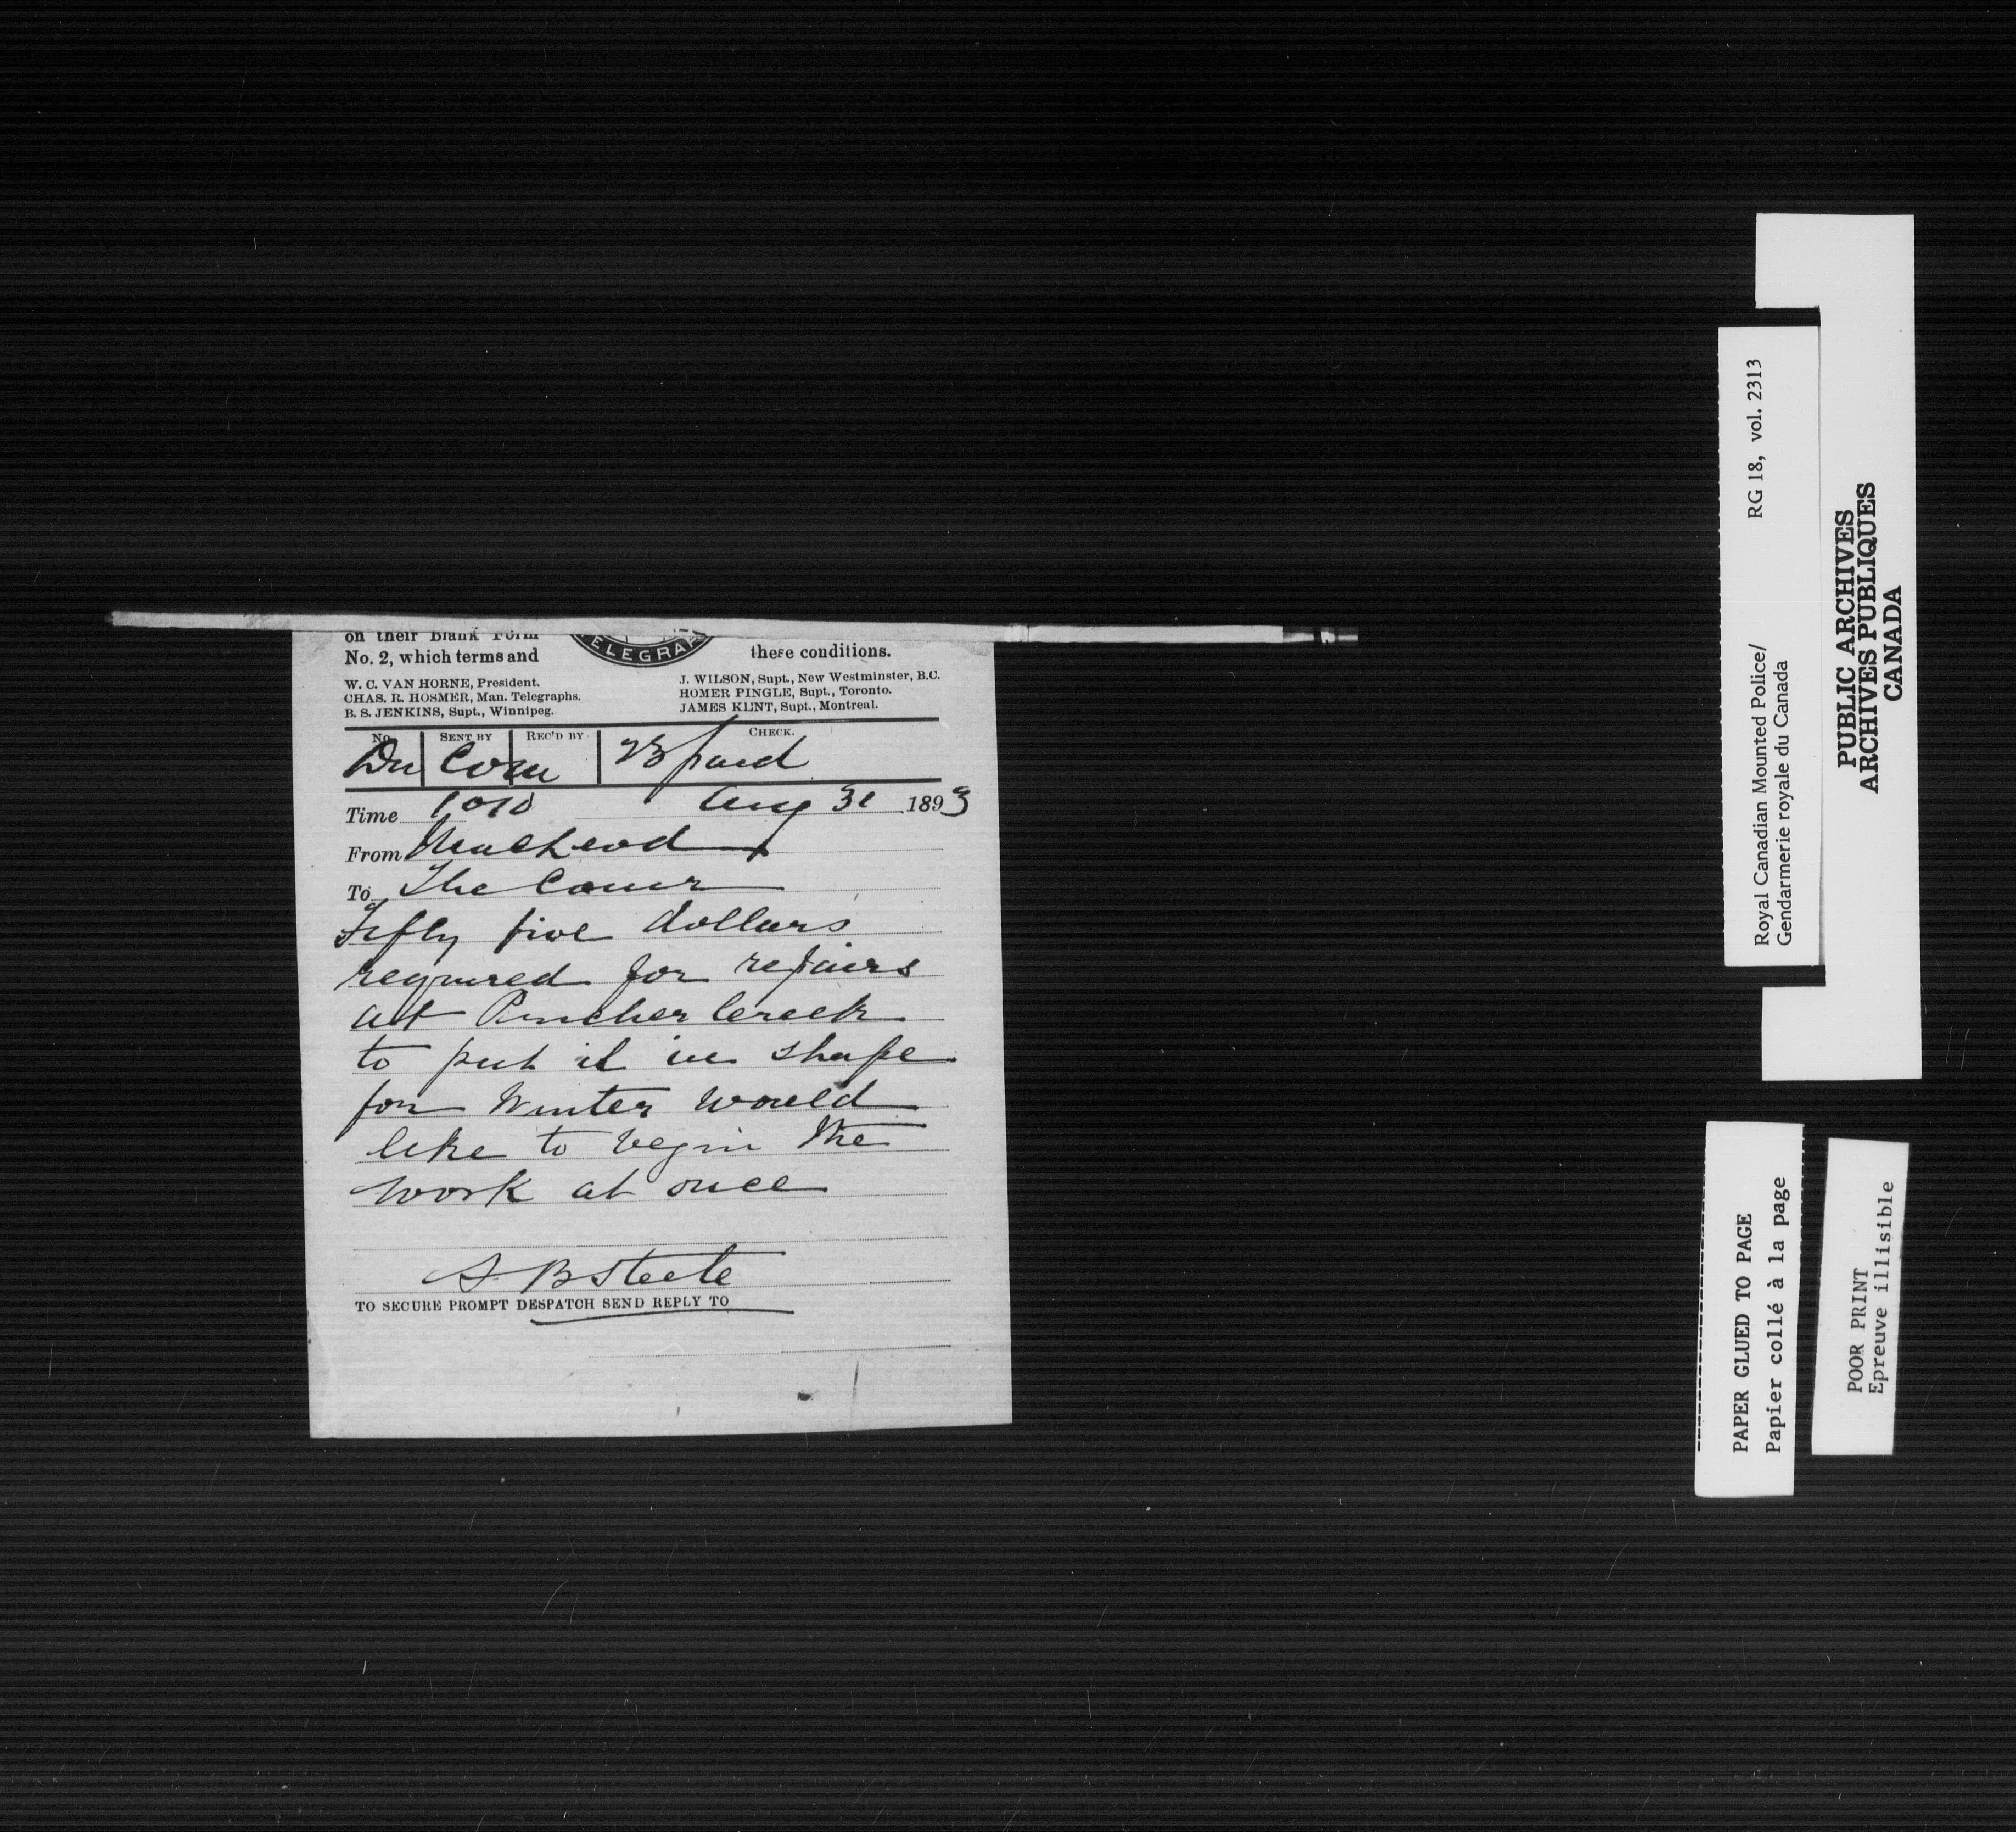 on their Blank Form
No. 2, which terms and
TELEGRA
these conditions.
W. C. VAN HORNE, President.
CHAS. R. HOSMER, Man. Telegraphs.
B. S. JENKINS, Supt., Winnipeg.
J. WILSON, Supt., New Westminster, B.C.
HOMER PINGLE, Supt., Toronto.
JAMES KENT, Supt., Montreal.
No. SENT BY REC'D BY CHECK.
23 paid
Time 1010 Aug 31 1893
From MacLeod
To The Comr
Fifty five dollars
required for repairs
at Pincher Creek
to put it in shape
for Winter would
like to begin the
work at once
S. B Steele
TO SECURE PROMPT DESPATCH SEND REPLY TO
Royal Canadian Mounted Police/ RG 18, vol. 2313
Gendarmerie royale du Canada
PUBLIC ARCHIVES
ARCHIVES PUBLIQUES
CANADA
PAPER GLUED TO PAGE
Papier collé à la page
POOR PRINT
Epreuve illisible